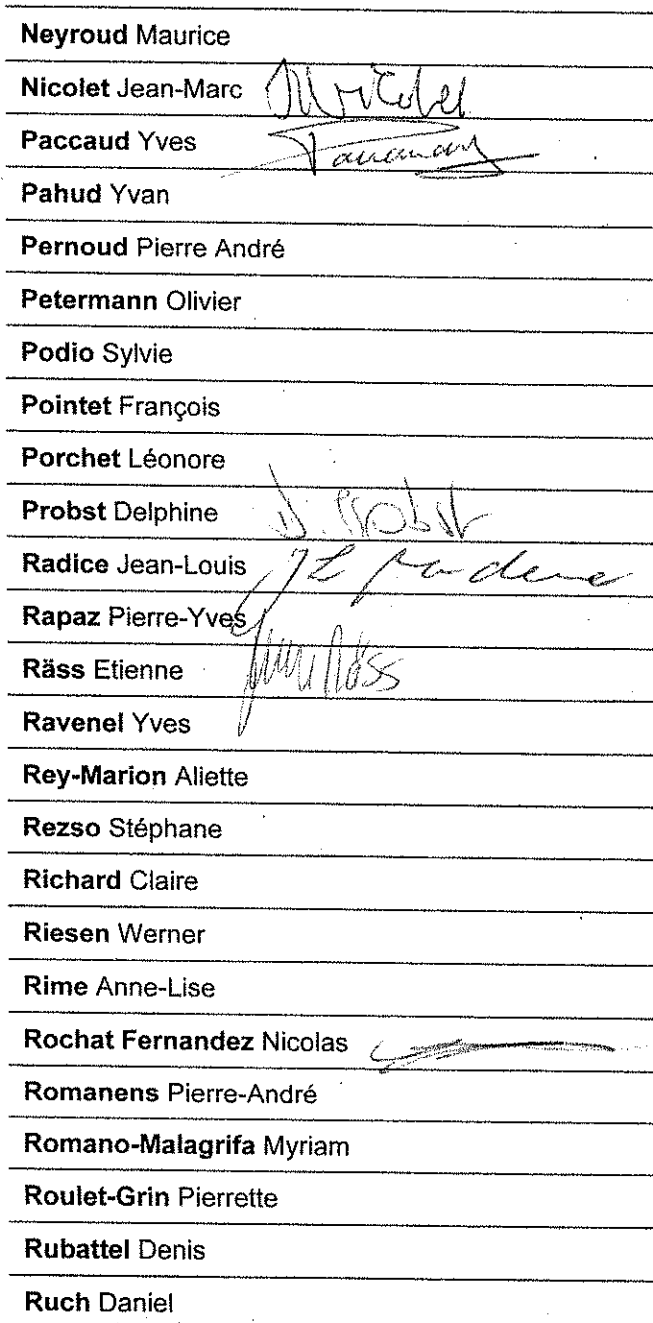 Neyroud Maurice
Nicolet Jean-Marc
Paccaud Yves
Pahud Yvan
Pernoud Pierre André
Petermann Olivier
Podio Sylvie
Pointet François
Porchet Léonore
Probst Delphine D. Probst
Radice Jean-Louis
Rapaz Pierre-Yves
Räss Etienne Räss
Ravenel Yves
Rey-Marion Aliette
Rezso Stéphane
Richard Claire
Riesen Werner
Rime Anne-Lise
Rochat Fernandez Nicolas
Romanens Pierre-André
Romano-Malagrifa Myriam
Roulet-Grin Pierrette
Rubattel Denis
Ruch Daniel